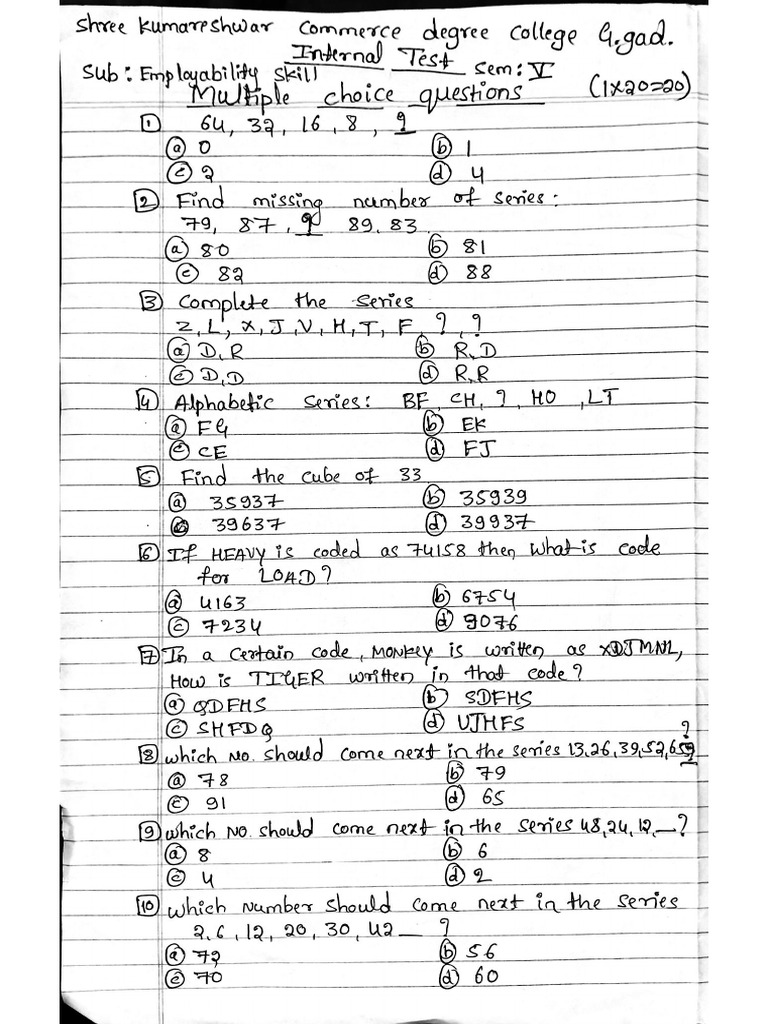 Shree Kumareshwar Commerce degree college G.gad.
Internal Test
Sub: Employability Skill Sem: V
Multiple choice questions (1x20=20)
1 64, 32, 16, 8, ?
a 0 b 1
c 2 d 4
2 Find missing number of series:
79, 87, ? 89, 83
a 80 b 81
c 82 d 88
3 Complete the Series
Z, L, X, J, V, H, T, F, ?, ?
a D, R b R, D
c D, D d R, R
4 Alphabetic Series: BF, CH, ?, HO, LT
a FG b EK
c CE d FJ
5 Find the cube of 33
a 35937 b 35939
c 39637 d 39937
6 If HEAVY is coded as 74158 then what is code
for LOAD?
a 4163 b 6754
c 7234 d 9076
7 In a certain code, MONKEY is written as XDJMNL,
How is TIGER written in that code?
a QDFHS b SDFHS
c SHFDQ d UJHFS
8 which No. should come next in the series 13,26,39,52,65?
a 78 b 79
c 91 d 65
9 which No. should come next in the series 48,24,12,_?
a 8 b 6
c 4 d 2
10 which Number should come next in the series
2,6,12,20,30,42 _ ?
a 72 b 56
c 70 d 60